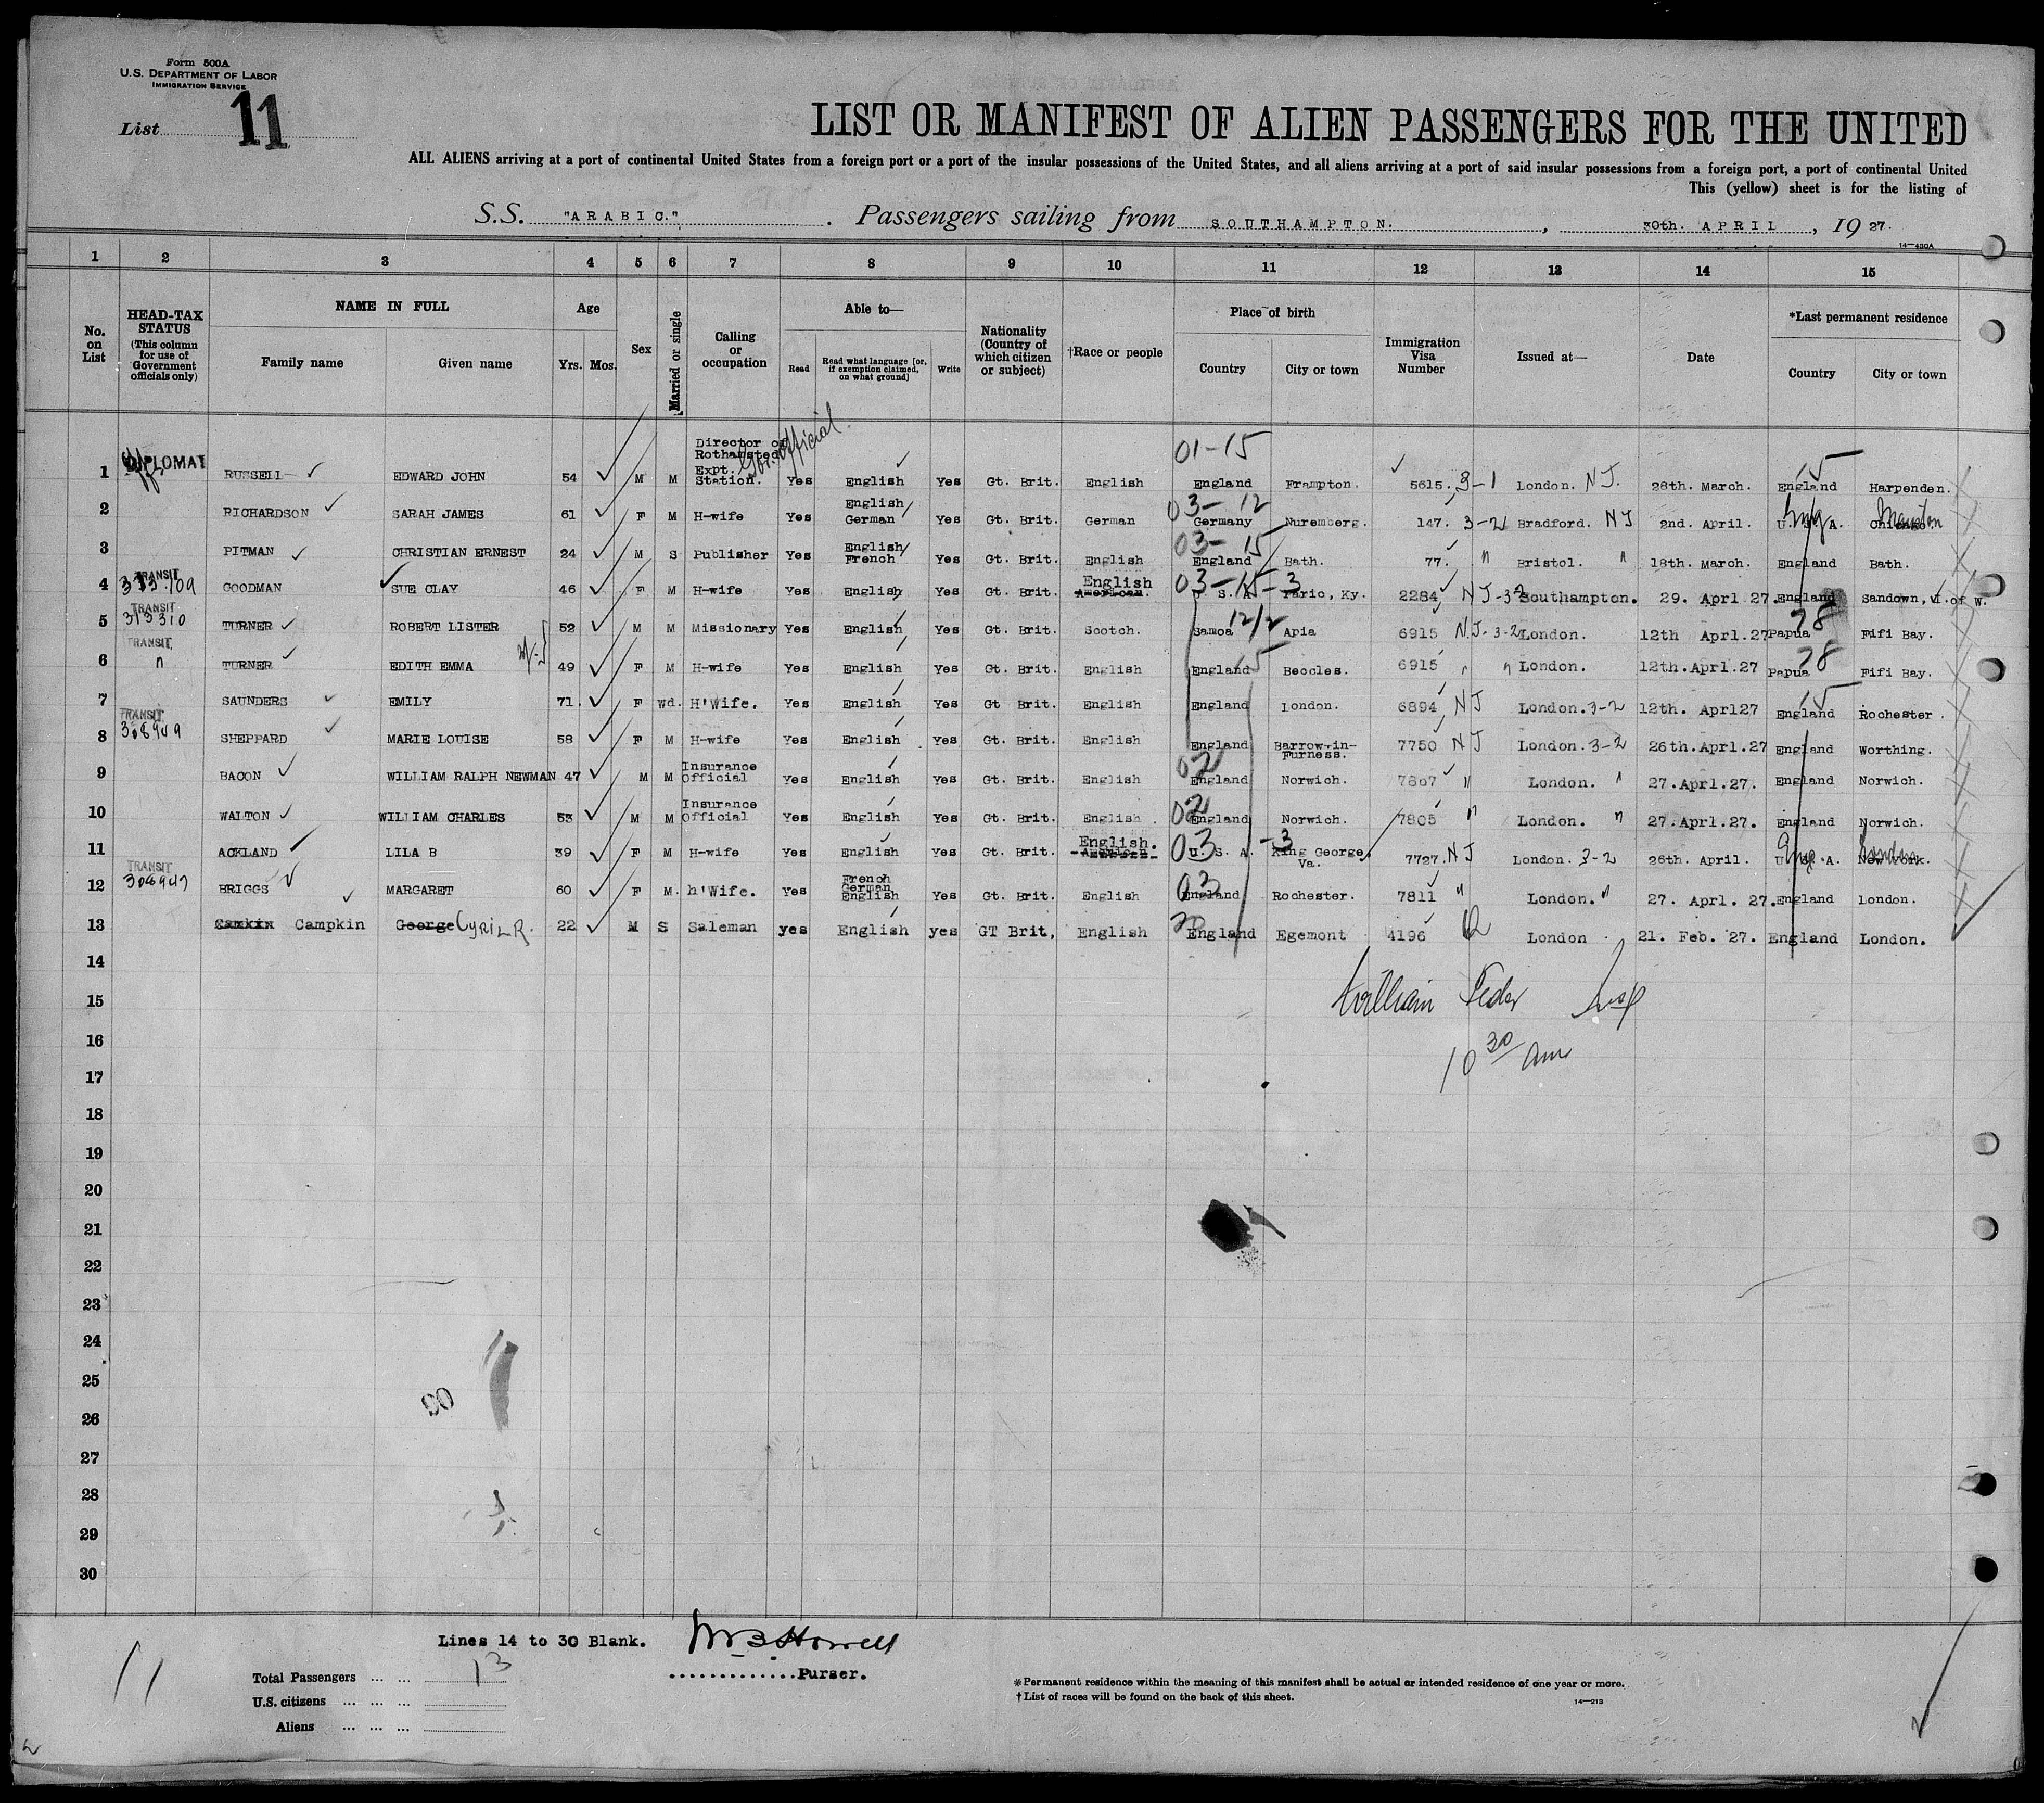 Form 500A
U.S. DEPARTMENT OF LABOR
IMMIGRATION SERVICE
List 11
LIST OR MANIFEST OF ALIEN PASSENGERS FOR THE UNITED
ALL ALIENS arriving at a port of continental United States from a foreign port or a port of the insular possessions of the United States, and all aliens arriving at a port of said insular possessions from a foreign port, a port of continental United
This (yellow) sheet is for the listing of
S.S. "ARABIC." . Passengers sailing from SOUTHAMPTON. , 30th. APRIL , 19 27.
14—430A
1 2 3 4 5 6 7 8 9 10 11 12 13 14 15
No. on List
HEAD-TAX STATUS (This column for use of Government officials only)
NAME IN FULL
Family name Given name
Age
Yrs. Mos.
Sex
Married or single
Calling or occupation
Able to—
Read Read what language [or, if exemption claimed, on what ground] Write
Nationality (Country of which citizen or subject)
†Race or people
Place of birth
Country City or town
Immigration Visa Number
Issued at—
Date
*Last permanent residence
Country City or town
1 DIPLOMAT RUSSELL EDWARD JOHN 54 M M Director of Rothamsted Expt. Station. Gov. Official. Yes English Yes Gt. Brit. English 01-15 England Frampton. 5615. 3-1 London. NJ. 28th. March. 15 England Harpenden.
2 RICHARDSON SARAH JAMES 61 F M H-wife Yes English German Yes Gt. Brit. German 03-12 Germany Nuremberg. 147. 3-2 Bradford. NJ 2nd. April. U. S. A. Eng Chicago.
3 PITMAN CHRISTIAN ERNEST 24 M S Publisher Yes English French Yes Gt. Brit. English 03-15 England Bath. 77. " Bristol. " 18th. March. England Bath.
4 TRANSIT GOODMAN SUE CLAY 46 F M H-wife Yes English Yes Gt. Brit. English American. 03-15-3 U. S. A. Paric, Ky. 2284 NJ-32 Southampton. 29. Aprl 27. England Sandown, I. of W.
5 TRANSIT 313310 TURNER ROBERT LISTER 52 M M Missionary Yes English Yes Gt. Brit. Scotch. 12/2 Samoa Apia 6915 N.J. 3-2 London. 12th Aprl.27 78 Papua Fifi Bay.
6 TRANSIT " TURNER EDITH EMMA 49 F M H-wife Yes English Yes Gt. Brit. English 15 England Beccles. 6915 " " London. 12th.Aprl.27 78 Papua Fifi Bay.
7 SAUNDERS EMILY 71. F wd. H'Wife. Yes English Yes Gt Brit. English England London. 6894 NJ London. 3-2 12th. Aprl27 15 England Rochester.
8 TRANSIT 308949 SHEPPARD MARIE LOUISE 58 F M H-wife Yes English Yes Gt. Brit. English England Barrow-in-Furness. 7750 NJ London. 3-2 26th.Aprl.27 England Worthing.
9 BACON WILLIAM RALPH NEWMAN 47 M M Insurance Official Yes English Yes Gt. Brit. English 02 England Norwich. 7807 " London. " 27.Aprl.27. England Norwich.
10 WALTON WILLIAM CHARLES 53 M M Insurance Official Yes English Yes Gt. Brit. English. 02 England Norwich. 7805 " London. " 27.Aprl.27. England Norwich.
11 ACKLAND LILA B 39 F M H-wife Yes English Yes Gt. Brit. English. American 03 -3 U. S. A. King George, Va. 7727. NJ London. 3-2 26th. April. U. S. A. Eng New York. London
12 TRANSIT 308947 BRIGGS MARGARET 60 F M. h'Wife. Yes French German English Yes Gt. Brit. English 03 England Rochester. 7811 " London. " 27. Aprl. 27. England London.
13 Camkin Campkin George CYRIL R. 22 M S Saleman yes English yes GT Brit, English 20 England Egemont 4196 London 21. Feb. 27. England London.
14
15 William Feder Insp
16 10 30 am
17
18
19
20
21
22
23
24
25
26
27
28
29
30
Lines 14 to 30 Blank.
11
Total Passengers ... ... 13
Purser.
U.S. citizens ... ... ...
Aliens ... ... ...
*Permanent residence within the meaning of this manifest shall be actual or intended residence of one year or more.
†List of races will be found on the back of this sheet.
14—213